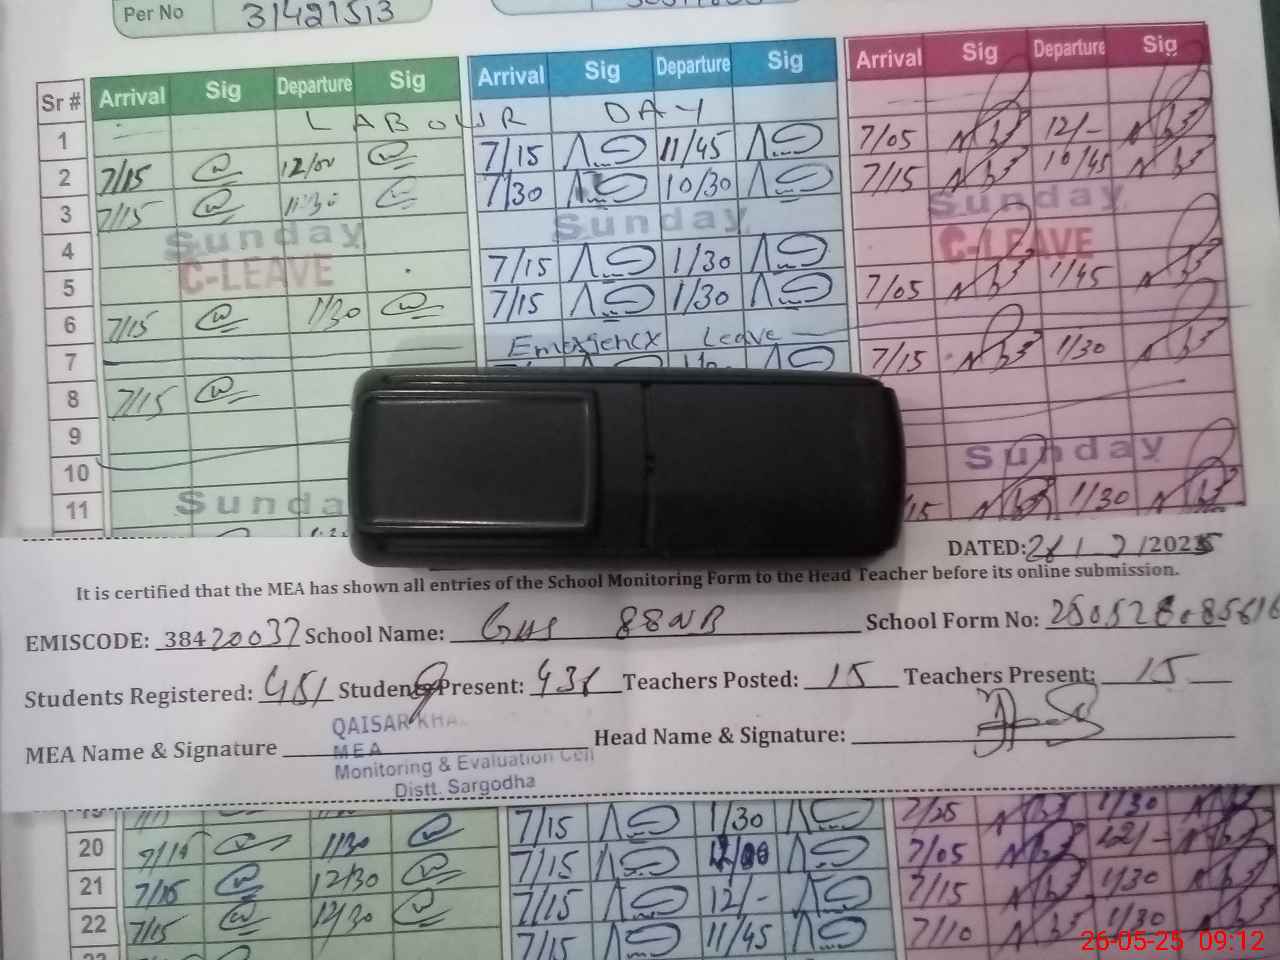 Per No 31421513
Sr # Arrival Sig Departure Sig Arrival Sig Departure Sig Arrival Sig Departure Sig
1 LABOUR DAY
2 7/15 12/00 7/15 11/45 7/05 12/-
3 7/15 11:30 7/30 10/30 7/15 10/45
4 Sunday Sunday Sunday
5 C-LEAVE 7/15 1/30 C-LEAVE
6 7/15 1/30 7/15 1/30 7/05 1/45
7 Emergency Leave
8 7/15 7/15 1/30
9
10
11 Sunda Sunday
15 1/30
DATED: 2025
It is certified that the MEA has shown all entries of the School Monitoring Form to the Head Teacher before its online submission.
EMISCODE: 38420037 School Name: GHS 88NB School Form No:
Students Registered: 451 Students Present: Teachers Posted: 15 Teachers Present: 15
MEA Name & Signature QAISAR KHA Head Name & Signature:
MEA
Monitoring & Evaluation Cell
Distt. Sargodha
7/15 1/30 1/30
20 1/30 7/15 7/05 12/-
21 7/15 12/30 7/15 12/- 7/15 1/30
22 7/15 12/30 7/15 11/45 7/10 1/30
26-05-25 09:12